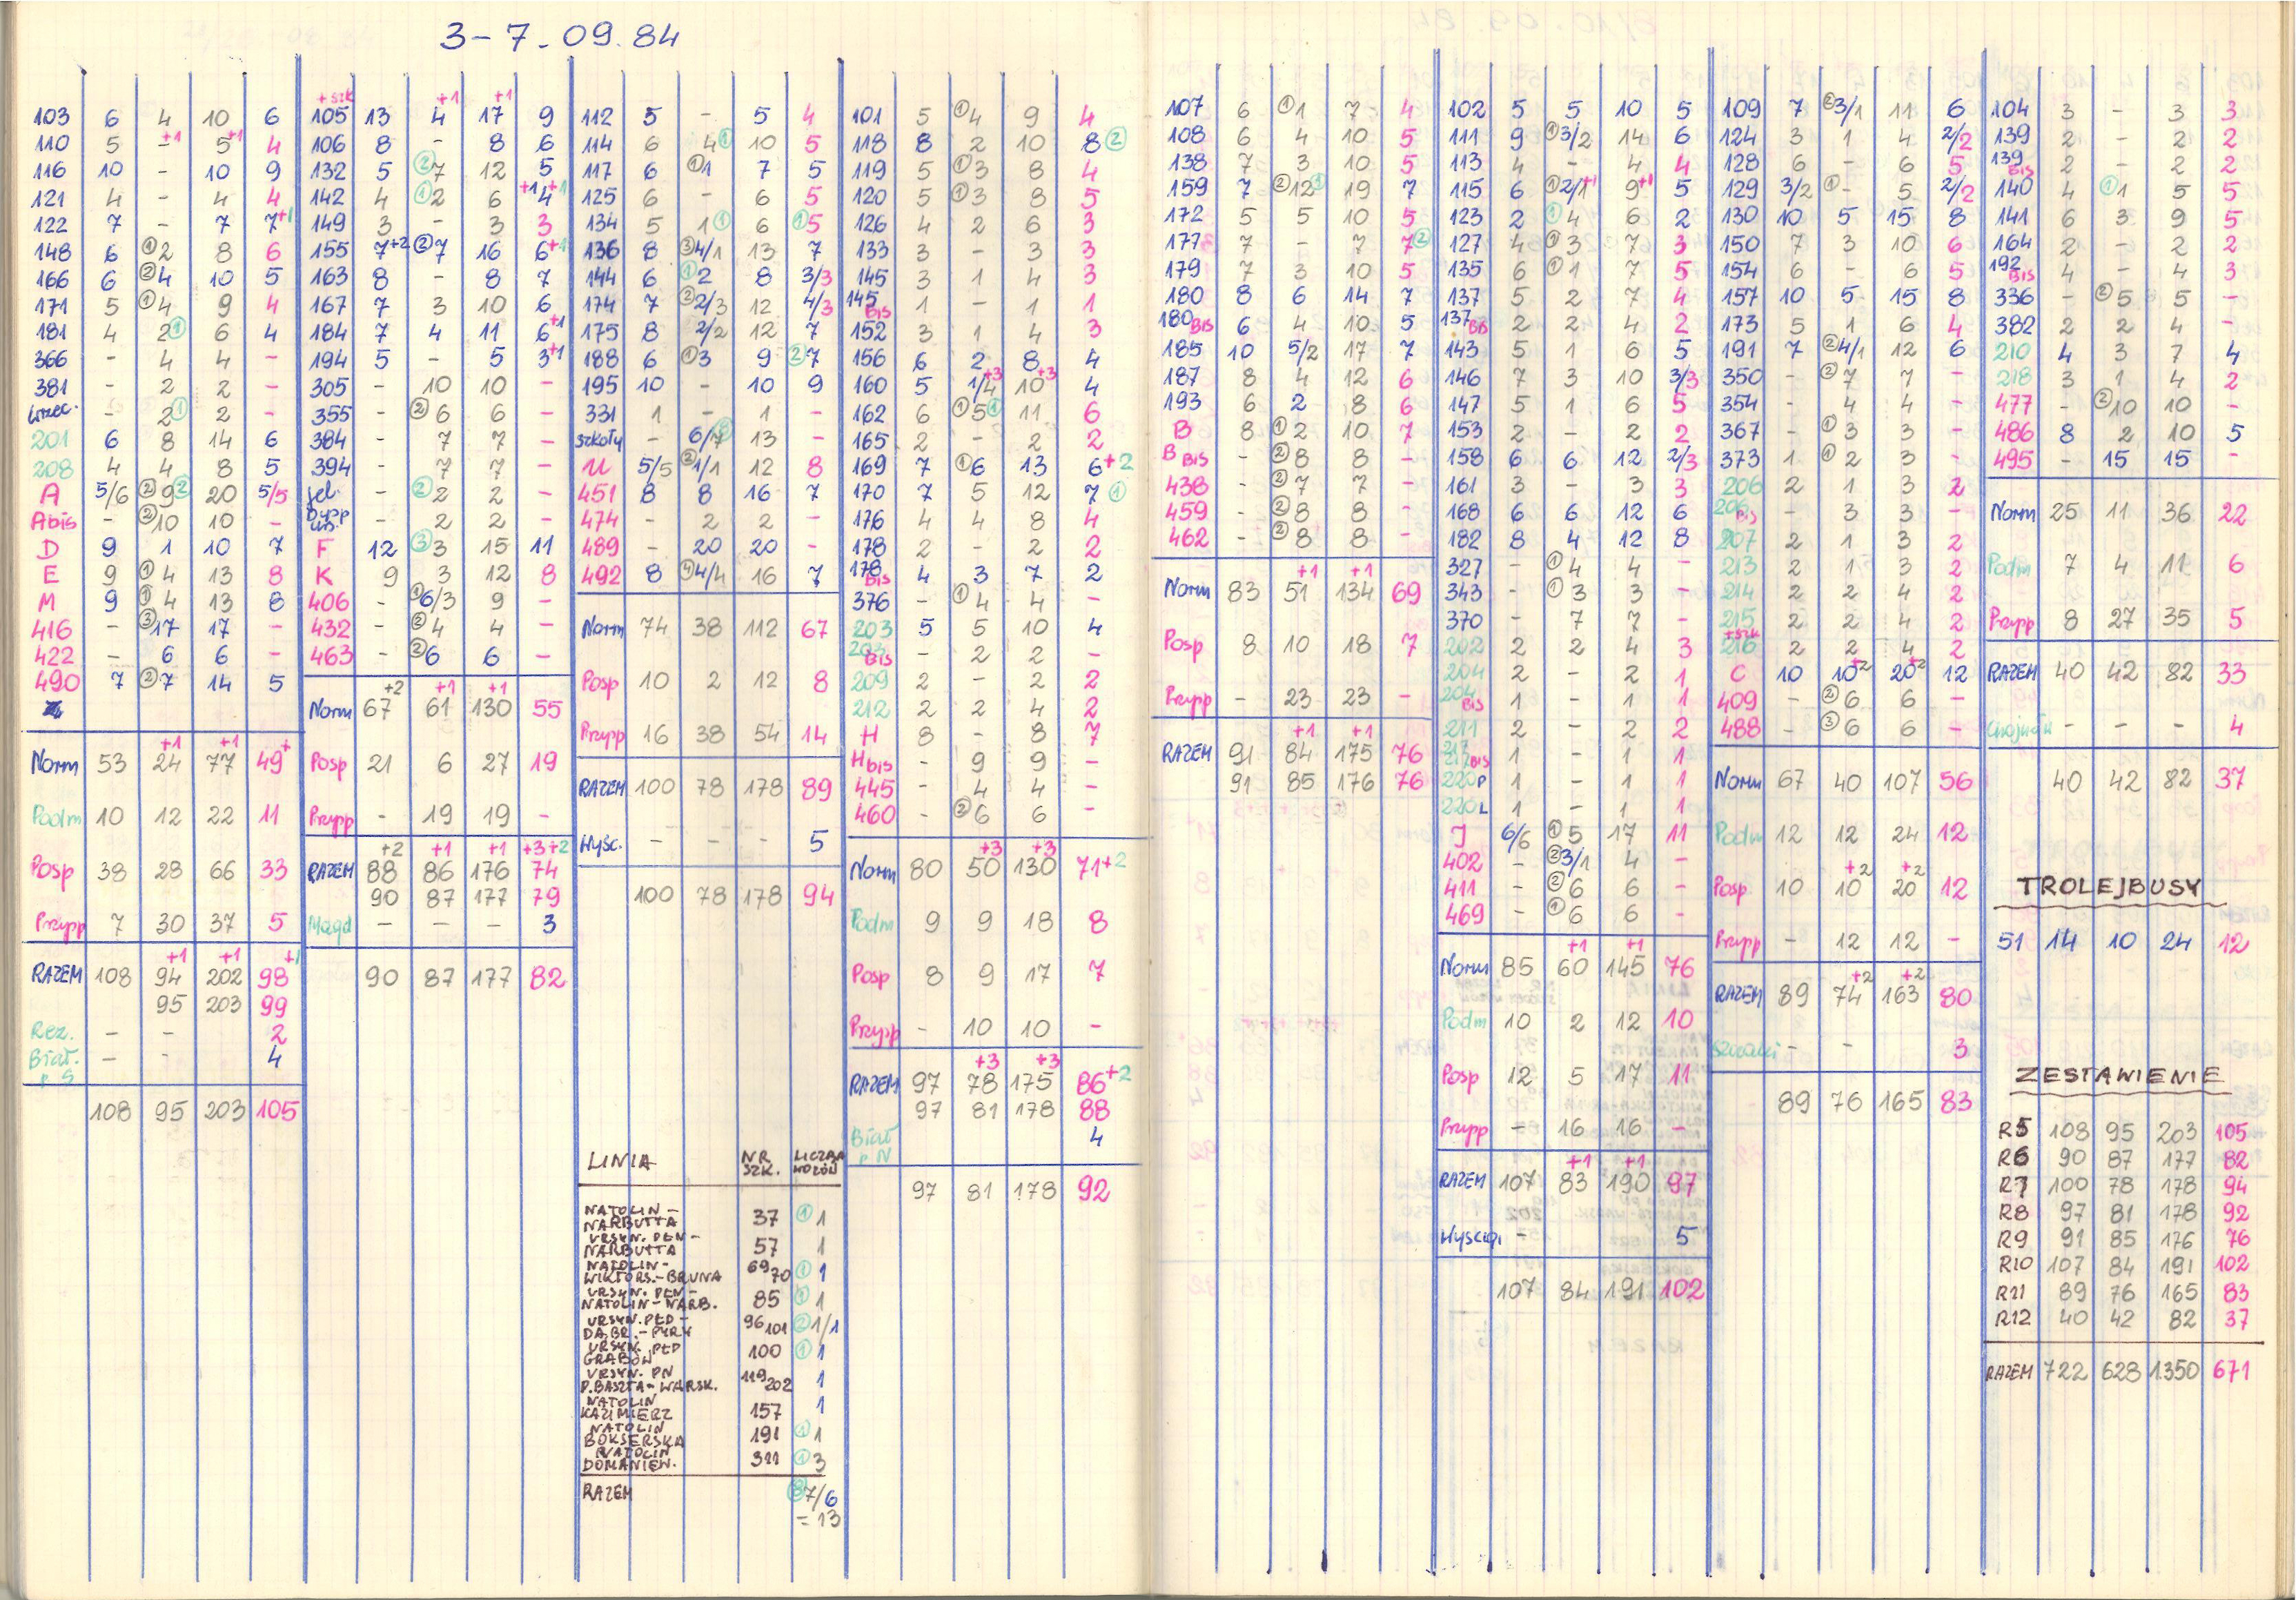 3-7.09.84
103 6 4 10 6
110 5 - +1 5 +1 4
116 10 - 10 9
121 4 - 4 4
122 7 - 7 7+1
148 6 ①2 8 6
166 6 ②4 10 5
171 5 ①4 9 4
181 4 2① 6 4
366 - 4 4 -
381 - 2 2 -
Wrzec. - 2① 2 -
201 6 8 14 6
208 4 4 8 5
A 5/6 ②9② 20 5/5
A bis - ②10 10 -
D 9 1 10 7
E 9 ①4 13 8
M 9 ①4 13 8
416 - ③17 17 -
422 - 6 6 -
490 7 ②7 14 5
+1 +1
Norm 53 24 77 49+
Podm 10 12 22 11
Posp 38 28 66 33
Przysp 7 30 37 5
+1 +1 +1
RAZEM 108 94 202 98
95 203 99
Rez. - - 2
Biał. p S - - 4
108 95 203 105
+szk +1 +1
105 13 4 17 9
106 8 - 8 6
132 5 ②7 12 5
142 4 ①2 6 +1 4 +1
149 3 - 3 3
155 7+2 ②7 16 6+1
163 8 - 8 7
167 7 3 10 6
184 7 4 11 6+1
194 5 - 5 3+1
305 - 10 10 -
355 - ②6 6 -
384 - 7 7 -
394 - 7 7 -
Jel. - ②2 2 -
Dysp - 2 2 -
F 12 ③3 15 11
K 9 3 12 8
406 - ①6/3 9 -
432 - ②4 4 -
463 - ②6 6 -
+2 +1 +1
Norm 67 61 130 55
Posp 21 6 27 19
Przysp - 19 19 -
+2 +1 +1 +3+2
RAZEM 88 86 176 74
90 87 177 79
Magd - - - 3
90 87 177 82
112 5 - 5 4
114 6 4① 10 5
117 6 ①1 7 5
125 6 - 6 5
134 5 1① 6 ①5
136 8 ③4/1 13 7
144 6 ①2 8 3/3
174 7 ②2/3 12 4/3
175 8 2/2 12 7
188 6 ①3 9 ②7
195 10 - 10 9
331 1 - 1 -
szkoły - 6/7⑧ 13 -
U 5/5 ②1/1 12 8
451 8 8 16 7
474 - 2 2 -
489 - 20 20 -
492 8 ④4/4 16 7
Norm 74 38 112 67
Posp 10 2 12 8
Przysp 16 38 54 14
RAZEM 100 78 178 89
Wyśc. - - - 5
100 78 178 94
LINIA NR SZK. LICZBA WOZÓW
NATOLIN - NARBUTTA 37 ① 1
URSYN. PŁN - NARBUTTA 57 1
NATOLIN - WIKTORS.-BRUNA 69 70 ① 1
URSYN. PŁN - NATOLIN-NARB. 85 ① 1
URSYN. PŁD - DĄBR.-PYRY 96 101 ② 1/1
URSYN. PŁD GRABÓW 100 ① 1
URSYN. PN P.BASZTA-WARSK. 119 202 1
NATOLIN KAZIMIERZ 157 1
NATOLIN BOKSERSKA 191 ① 1
NATOLIN DOMANIEW. 311 ① 3
RAZEM ⑧7/6
=13
101 5 ①4 9 4
118 8 2 10 8②
119 5 ①3 8 4
120 5 ①3 8 5
126 4 2 6 3
133 3 - 3 3
145 3 1 4 3
145 BIS 1 - 1 1
152 3 1 4 3
156 6 2 8 4
160 5 1/4+3 10+3 4
162 6 ①5① 11 6
165 2 - 2 2
169 7 ①6 13 6+2
170 7 5 12 7①
176 4 4 8 4
178 2 - 2 2
178 BIS 4 3 7 2
376 - ①4 4 -
203 5 5 10 4
203 BIS - 2 2 -
209 2 - 2 2
212 2 2 4 2
H 8 - 8 7
H bis - 9 9 -
445 - 4 4 -
460 - ②6 6 -
+3 +3
Norm 80 50 130 71+2
Podm 9 9 18 8
Posp 8 9 17 7
Przysp - 10 10 -
+3 +3
RAZEM 97 78 175 86+2
97 81 178 88
Biał p N 4
97 81 178 92
107 6 ①1 7 4
108 6 4 10 5
138 7 3 10 5
159 7 ②12① 19 7
172 5 5 10 5
177 7 - 7 7②
179 7 3 10 5
180 8 6 14 7
180 BIS 6 4 10 5
185 10 5/2 17 7
187 8 4 12 6
193 6 2 8 6
B 8 ①2 10 7
B BIS - ②8 8 -
438 - ②7 7 -
459 - ②8 8 -
462 - ②8 8 -
+1 +1
Norm 83 51 134 69
Posp 8 10 18 7
Przysp - 23 23 -
+1 +1
RAZEM 91 84 175 76
91 85 176 76
102 5 5 10 5
111 9 ①3/2 14 6
113 4 - 4 4
115 6 ①2/1+1 9+1 5
123 2 ①4 6 2
127 4 ①3 7 3
135 6 ①1 7 5
137 5 2 7 4
137 BIS 2 2 4 2
143 5 1 6 5
146 7 3 10 3/3
147 5 1 6 5
153 2 - 2 2
158 6 6 12 2/3
161 3 - 3 3
168 6 6 12 6
182 8 4 12 8
327 - ①4 4 -
343 - ①3 3 -
370 - 7 7 -
202 2 2 4 3
204 2 - 2 1
204 BIS 1 - 1 1
211 2 - 2 2
217 BIS 1 - 1 1
220P 1 - 1 1
220L 1 - 1 1
J 6/6 ①5 17 11
402 - ②3/1 4 -
411 - ②6 6 -
469 - ①6 6 -
+1 +1
Norm 85 60 145 76
Podm 10 2 12 10
Posp 12 5 17 11
Przysp - 16 16 -
+1 +1
RAZEM 107 83 190 97
Wyścigi - 5
107 84 191 102
109 7 ②3/1 11 6
124 3 1 4 2/2
128 6 - 6 5
129 3/2 ①- 5 2/2
130 10 5 15 8
150 7 3 10 6
154 6 - 6 5
157 10 5 15 8
173 5 1 6 4
191 7 ②4/1 12 6
350 - ②7 7 -
354 - 4 4 -
367 - ①3 3 -
373 1 ①2 3 -
206 2 1 3 2
206 BIS - 3 3 -
207 2 1 3 2
213 2 1 3 2
214 2 2 4 2
215 2 2 4 2
+szk
216 2 2 4 2
C 10 10+2 20+2 12
409 - ②6 6 -
488 - ③6 6 -
Norm 67 40 107 56
Podm 12 12 24 12
+2 +2
Posp 10 10 20 12
Przysp - 12 12 -
+2 +2
RAZEM 89 74 163 80
- - 3
89 76 165 83
104 3 - 3 3
139 2 - 2 2
139 BIS 2 - 2 2
140 4 ①1 5 5
141 6 3 9 5
164 2 - 2 2
192 BIS 4 - 4 3
336 - ②5 5 -
382 2 2 4 -
210 4 3 7 4
218 3 1 4 2
477 - ②10 10 -
486 8 2 10 5
495 - 15 15 -
Norm 25 11 36 22
Podm 7 4 11 6
Przysp 8 27 35 5
RAZEM 40 42 82 33
Chojnów - - - 4
40 42 82 37
TROLEJBUSY
51 14 10 24 12
ZESTAWIENIE
R5 108 95 203 105
R6 90 87 177 82
R7 100 78 178 94
R8 97 81 178 92
R9 91 85 176 76
R10 107 84 191 102
R11 89 76 165 83
R12 40 42 82 37
RAZEM 722 628 1350 671